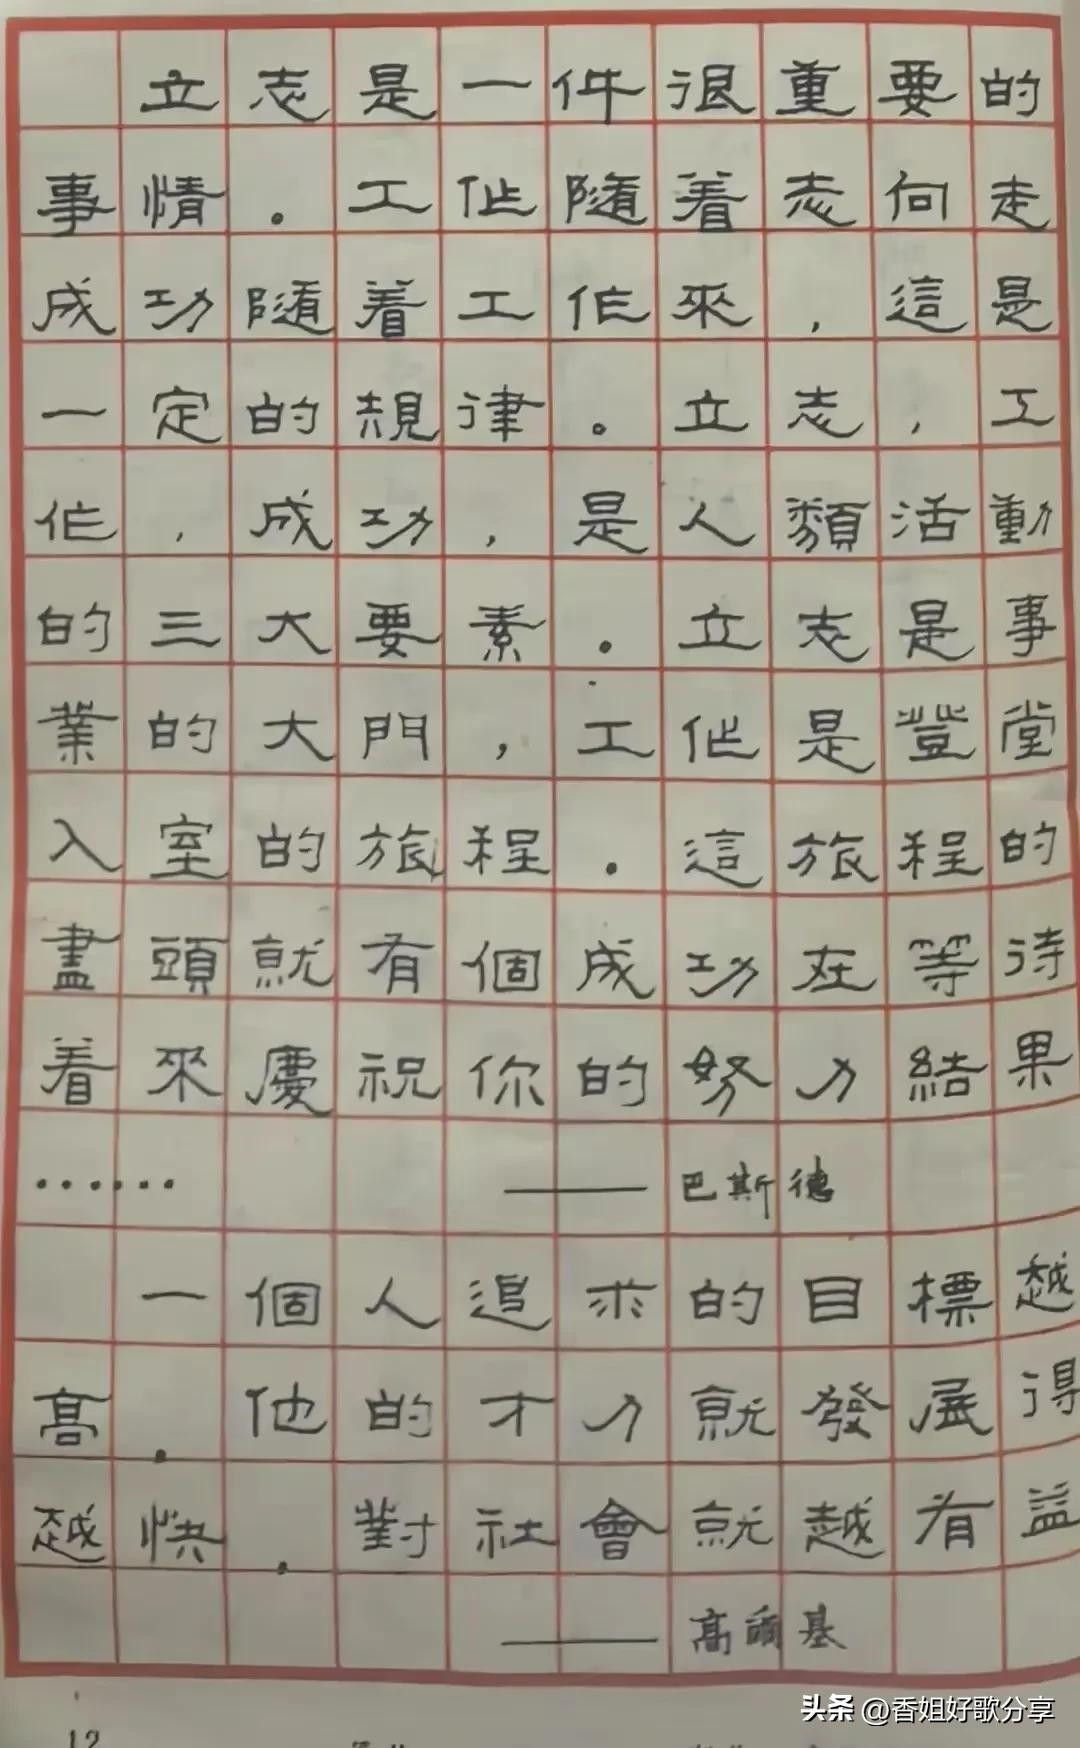 立志是一件很重要的
事情。工作隨着志向走
成功隨着工作來，這是
一定的規律。立志，工
作，成功，是人類活動
的三大要素．立志是事
業的大門，工作是登堂
入室的旅程．這旅程的
盡頭就有個成功在等待
着來慶祝你的努力結果
…… ——巴斯德
一個人追求的目標越
高．他的才力就發展得
越快．對社會就越有益
——高爾基
12
头条 @香姐好歌分享